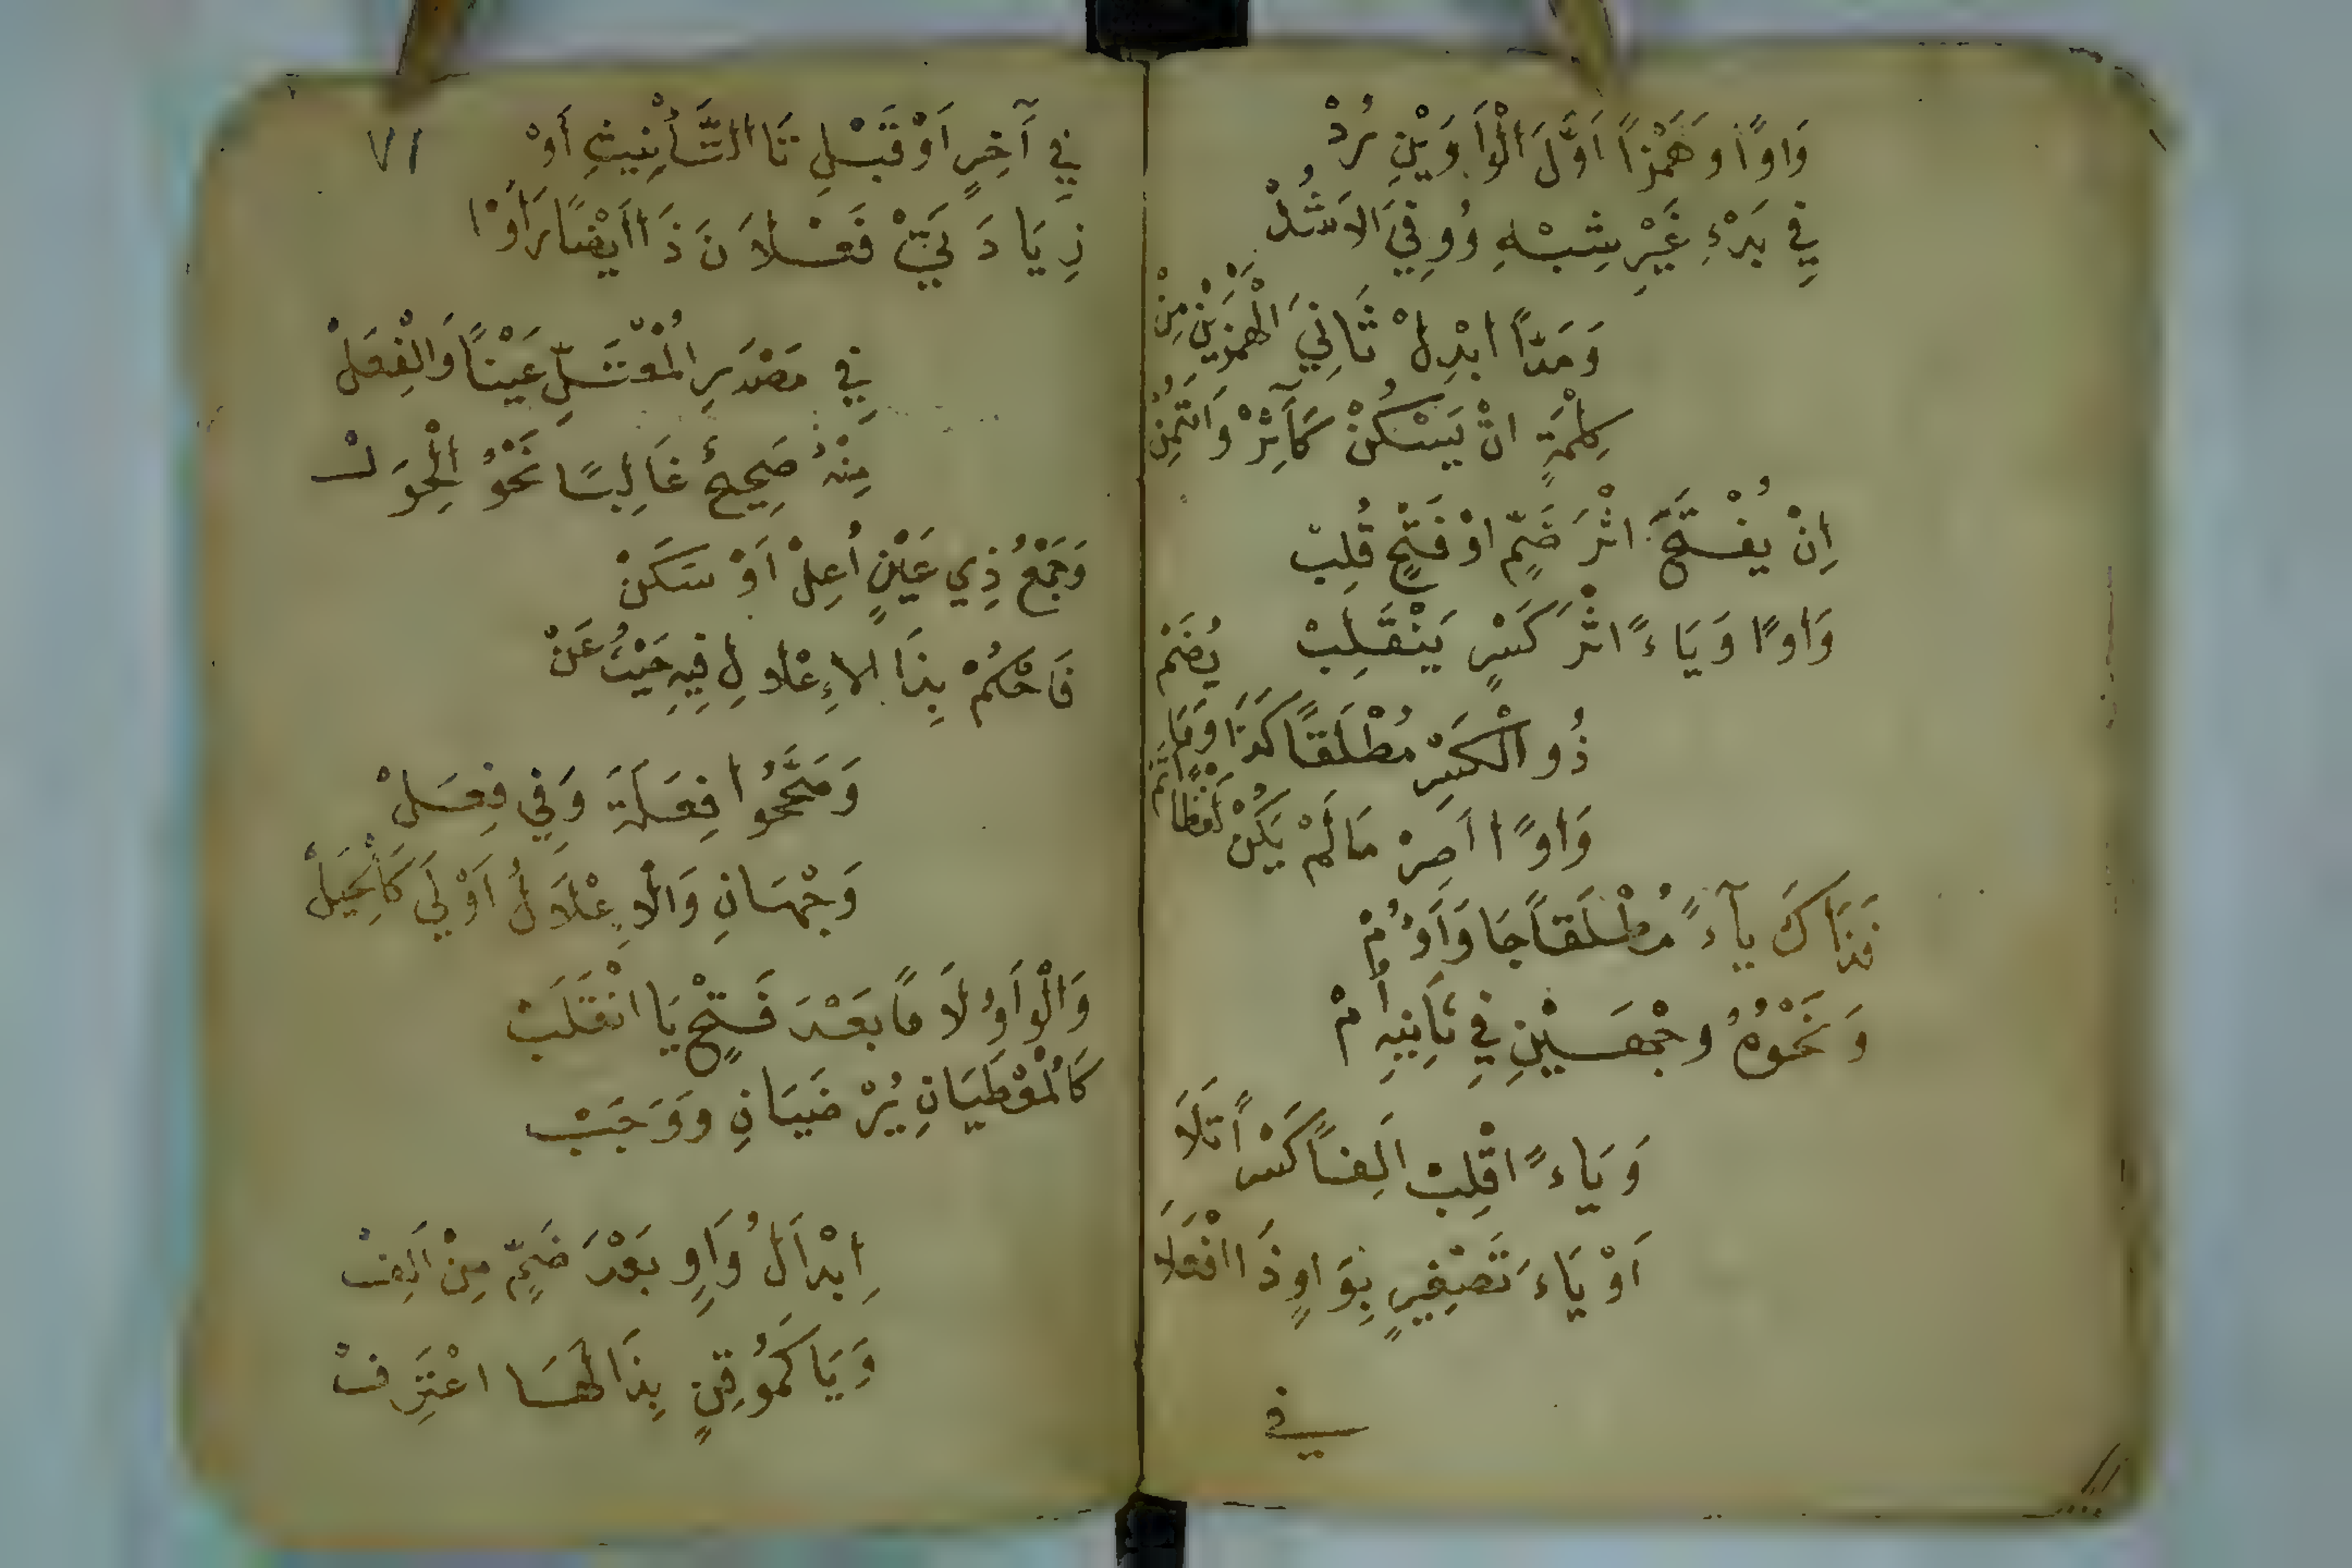 وَاوًا وَهَمْزًا اَوَّلَ الْوَاوَيْنِ رُدْ
فِي بَدْءِ غَيْرِ شِبْهِ وُوفِيَ الاَشُدْ
وَمَدًّا ابْدِلْ ثَانِيَ الْهَمْزَيْنِ مِنْ
كِلْمَةٍ انْ يَسْكُنْ كَآثِرْ وَائْتُمِنْ
اِنْ يُفْتَحَ اثْرَ ضَمٍّ اوْ فَتْحٍ قُلِبْ
وَاوًا وَيَاءً اثْرَ كَسْرٍ يَنْقَلِبْ
ذُو الْكَسْرِ مُطْلَقًا كَذَا وَمَا يُضَمْ
وَاوًا اَصِرْ مَالَمْ يَكُنْ لَفْظًا اَتَمْ
فَذَاكَ يآءً مُطْلَقاً جَا وَاَوُمْ
وَنَحْوُهُ وجْهَيْنِ فِي ثَانِيهِ اُمْ
وَيَاءً اقْلِبْ اَلِفاً كَسْراً تَلَا
اَوْ يَاءَ تَصْغِيرٍ بِوَاوٍ ذَا افْعَلَا
في
٧١
فِي آخِرٍ اَوْ قَبْلِ تَا التَّأْنِيثِ اَوْ
زِيَادَتَيْ فَعْلاَنَ ذَا اَيْضًا رَأَوْا
فِي مَصْدَرِ الْمُعْتَلِّ عَيْنًا وَالْفِعَلْ
مِنْهُ صَحِيحٌ غَالِبًا نَحْوُ الْحِوَلْ
وَجَمْعُ ذِي عَيْنٍ اُعِلْ اَوْ سَكَنْ
فَاحْكُمْ بِذَا الاِعْلَالِ فِيهِ حَيْثُ عَنْ
وَصَحَّحُوا فِعَلَةً وَفِي فِعَلْ
وَجْهَانِ وَالْاِعْلَالُ اَوْلَى كَالْحِيَلْ
وَالْوَاوُ لاَمًا بَعْدَ فَتْحٍ يَا انْقَلَبْ
كَالْمُعْطَيَانِ يُرْضَيَانِ وَوَجَبْ
اِبْدَالُ وَاوٍ بَعْدَ ضَمٍّ مِنْ اَلِفْ
وَيَا كَمُوقِنٍ بِذَا لَهَا اعْتَرِفْ